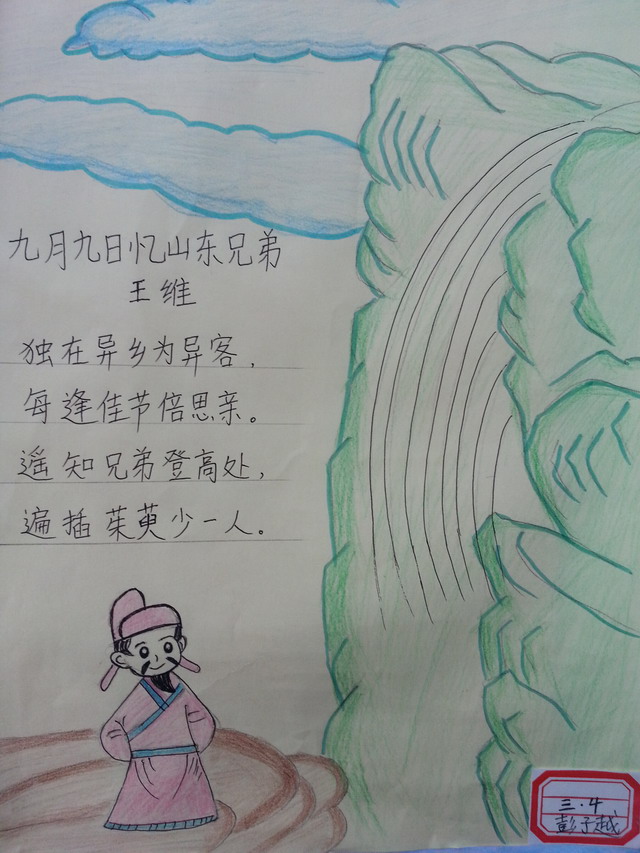 九月九日忆山东兄弟
王维
独在异乡为异客，
每逢佳节倍思亲。
遥知兄弟登高处，
遍插茱萸少一人。
三.4
彭子越